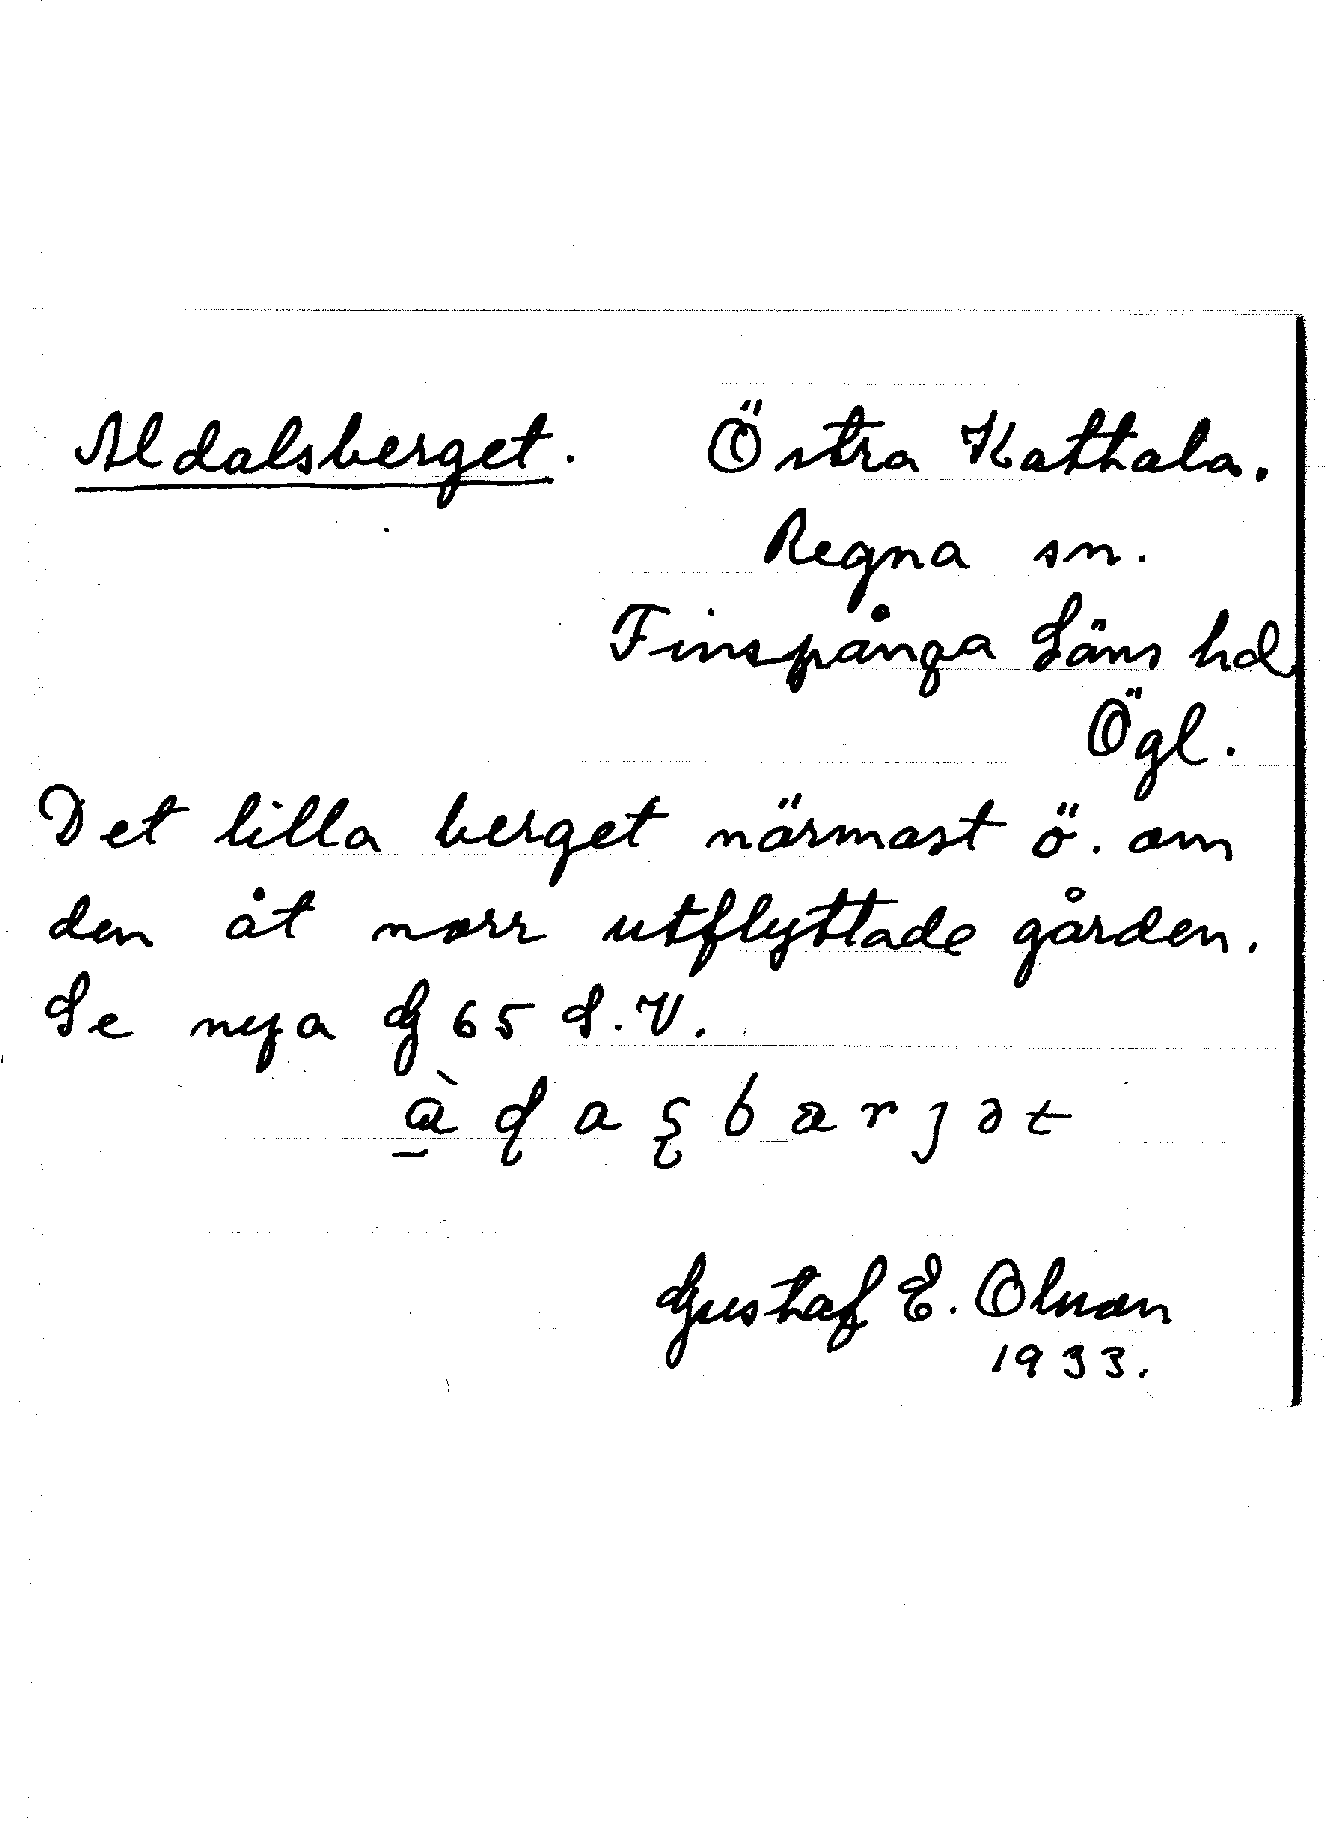 Aldalsberget. Östra Kathala.
Regna sn.
Finspånga Läns hd
Ögl.
Det lilla berget närmast ö. om
den åt norr utflyttade gården.
Se nya G 65 S.V.
Gustaf E. Olsson
1933.